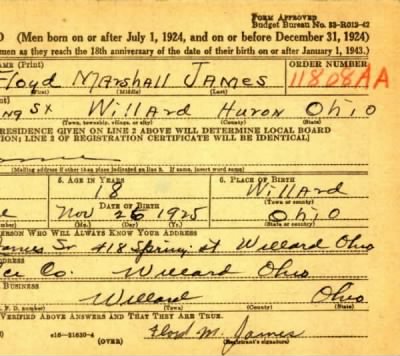 FORM APPROVED
Budget Bureau No. 33-R012-42
D (Men born on or after July 1, 1924, and on or before December 31, 1924)
men as they reach the 18th anniversary of the date of their birth on or after January 1, 1943.)
NAME (Print) ORDER NUMBER
Floyd Marshall James 11808AA
(First) (Middle) (Last)
ng St Willard Huron Ohio
(Town, township, village, or city) (County) (State)
RESIDENCE GIVEN ON LINE 2 ABOVE WILL DETERMINE LOCAL BOARD
TION; LINE 2 OF REGISTRATION CERTIFICATE WILL BE IDENTICAL]
[Mailing address if other than place indicated on line 2. If same, insert word same]
5. AGE IN YEARS 6. PLACE OF BIRTH
18 Willard
DATE OF BIRTH (Town or county)
Nov 26 1925 Ohio
(Mo.) (Day) (Yr.) (State or country)
PERSON WHO WILL ALWAYS KNOW YOUR ADDRESS
James Sr 418 Spring St Willard Ohio
ADDRESS
Co. Willard Ohio
BUSINESS
Willard Ohio
F. D. number) (Town) (County) (State)
VERIFIED ABOVE ANSWERS AND THAT THEY ARE TRUE.
Floyd M. James
e16—21630-4 (OVER) (Registrant's signature)